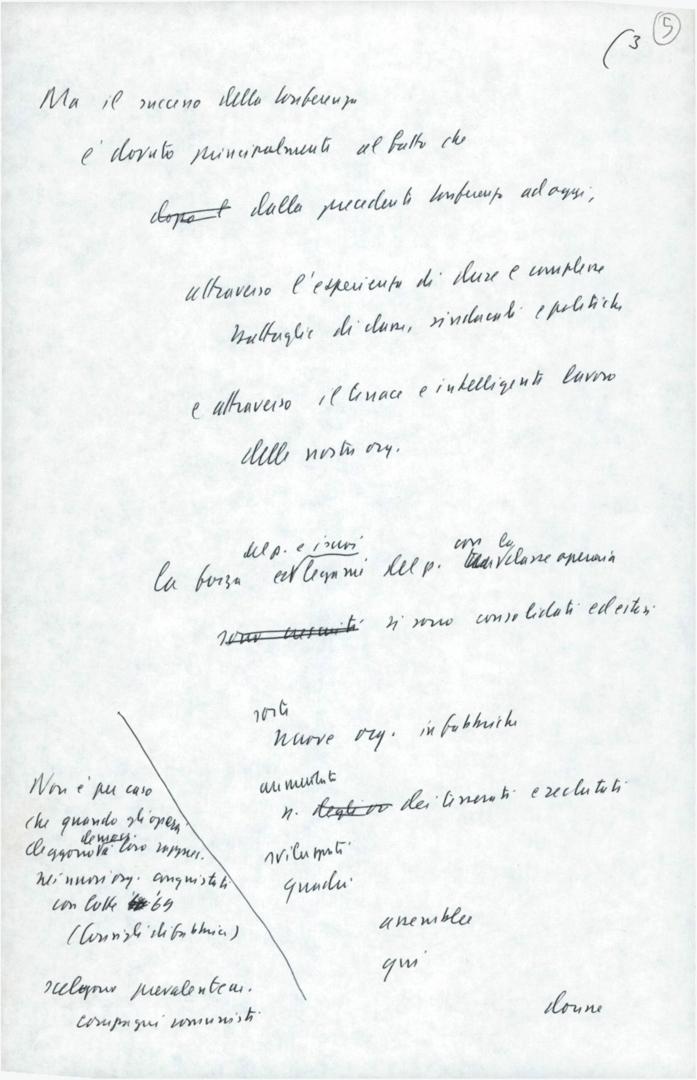 (3 5
Ma il successo della Conferenza
è dovuto principalmente al fatto che
dopo l dalla precedente Conferenza ad oggi,
attraverso l'esperienza di dure e complesse
battaglie di classe, sindacali e politiche
e attraverso il tenace e intelligente lavoro
delle nostre org.
del p. e i suoi con la
la forza ed legami del p. classe operaia
sono cresciuti si sono consolidati ed estesi
sorte
nuove org. in fabbriche
aumentati
n. degli dei tesserati e reclutati
sviluppati
quadri
assemblee
qui
donne
Non è per caso
che quando gli operai
democr.
eleggono i loro rappres.
nei nuovi org. conquistati
con lotte '69
(Consigli di fabbrica)
scelgono prevalentem.
compagni comunisti